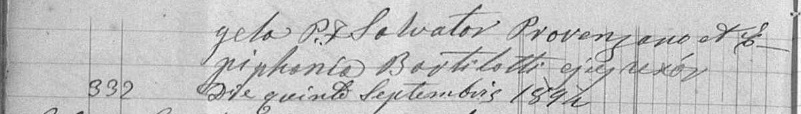 gelo P. & Salvator Provenzano et E-
piphania Bartilotti ejus uxor
332 Die quinto Septembris 1894